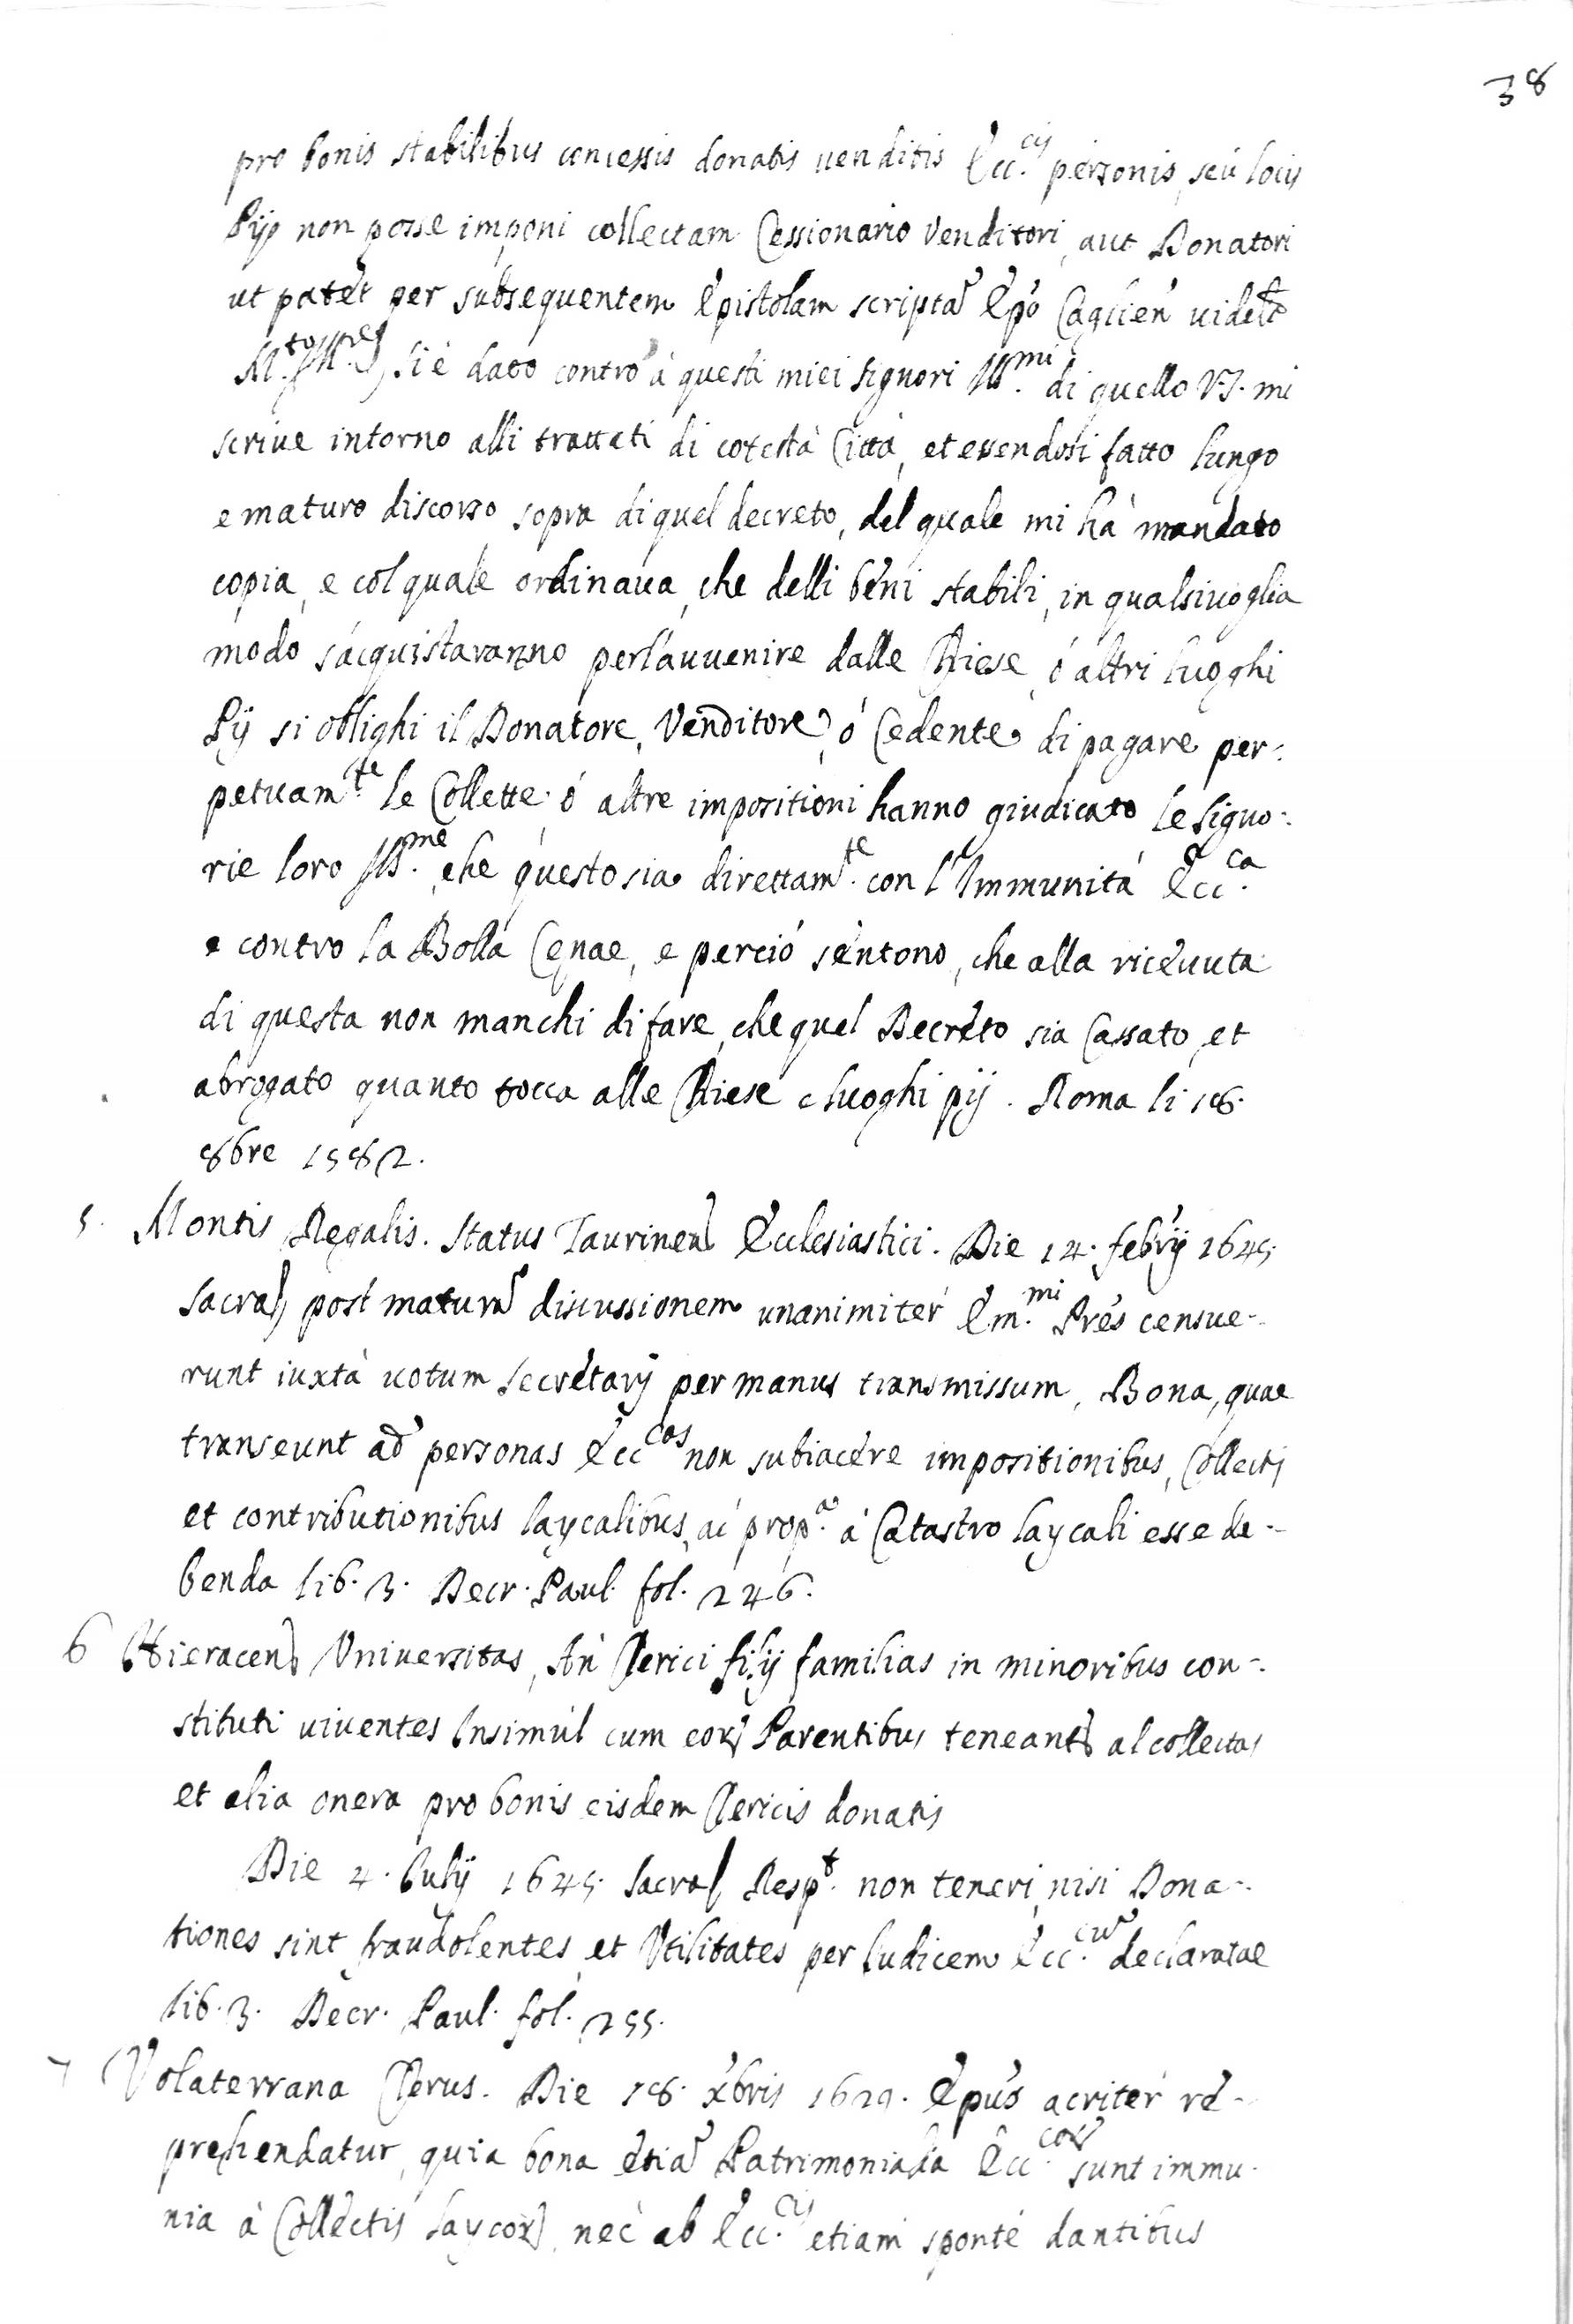 38
pro bonis stabilibus concessis donatis venditis Ecc.cis personis, seù locis
Pijs non posse imponi collectam Cessionario Venditori, aut Donatori
ut patet per subsequentem Epistolam scriptã Epõ Caglien uidelt
M.to Si è dato contro à questi miei Signori Ill.mi di quello V.S. mi
scriue intorno alli trattati di cotestà Città, et essendosi fatto lungo
e maturo discorso sopra di quel decreto, del quale mi hà mandato
copia, e col quale ordinaua, che delli beni stabili, in qualsiuoglia
modo s'acquistaranno per l'auuenire dalle Chiese, ó altri luoghi
Pij si oblighi il Donatore, Venditore, ó Cedente di pagare per-
petuam.te le Collette, ó altre impositioni hanno giudicato le Signo-
rie loro Ill.me, che questo sia direttam.te con l'Immunità Ecc.ca
e contro la Bolla Cenae, e perciò sentono, che alla riceuuta
di questa non manchi di fare, che quel Decreto sia Cassato, et
abrogato quanto tocca alle Chiese e luoghi pij. Roma li 18.
8bre 1582.
5. Montis Regalis. Status Taurinen Ecclesiastici. Die 14. febrij 1645.
Sacra post maturã discussionem unanimiter Em.mi Prẽs censue-
runt iuxtà uotum Secretarij per manus transmissum, Bona, quae
transeunt ad personas Ecc.cas non subiacere impositionibus, Collectis
et contributionibus laycalibus, ac prop.a à Catastro laycali esse de-
benda lib. 3. Decr. Paul. fol. 246.
6 Hieracen Vniuersitas, An Clerici filij familias in minoribus con-
stituti uiuentes Insimul cum eor Parentibus teneant al collectas
et alia onera pro bonis eisdem Clericis donatis
Die 4. Iulij 1645. Sacra Resp.t non teneri, nisi Dona-
tiones sint fraudolentes, et Vtilitates per Iudicem Ecc.cũ declaratae
lib. 3. Decr. Paul. fol. 255.
7 Volaterrana Clerus. Die 18. xbris 1629. Epũs acriter re-
prehendatur, quia bona etiã Patrimonialia Ecc.cor sunt immu-
nia à Collectis laycor, nec ab Ecc.cis etiam sponté dantibus